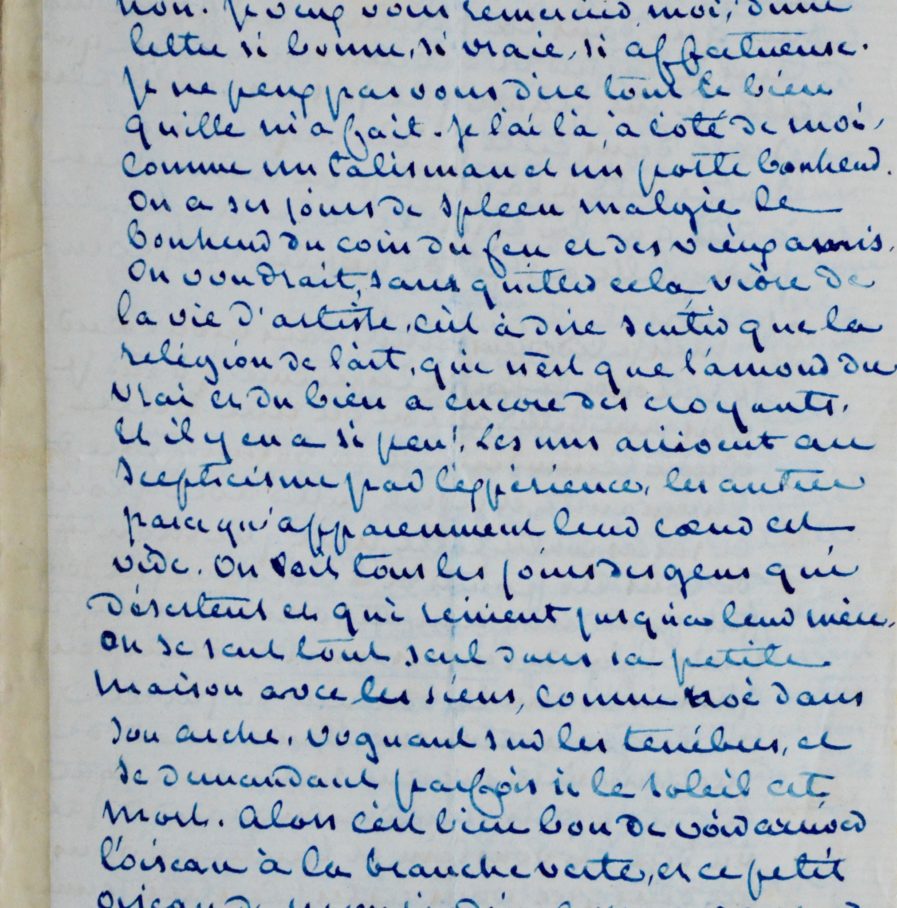 non. Je veux vous remercier, moi, d'une
lettre si bonne, si vraie, si affectueuse.
Je ne peux pas vous dire tout le bien
qu'elle m'a fait. Je l'ai là à côté de moi,
comme un talisman et un porte bonheur.
On a ses jours de spleen malgré le
bonheur du coin du feu et des vieux amis.
On voudrait, sans quitter cela, vivre de
la vie d'artiste, c'est à dire sentir que la
religion de l'art, qui n'est que l'amour du
vrai et du bien a encore des croyants.
Et il y en a si peu! Les uns arrivent au
scepticisme par l'expérience, les autres
parce qu'apparemment leur cœur est
vide. On voit tous les jours des gens qui
désertent et qui renient jusqu'à leur mère.
On se sent tout seul dans sa petite
maison avec les siens, comme Noé dans
son arche, voguant sur les ténèbres, et
se demandant parfois si le soleil est
mort. Alors c'est bien bon de voir arriver
l'oiseau à la branche verte, et ce petit
oiseau de